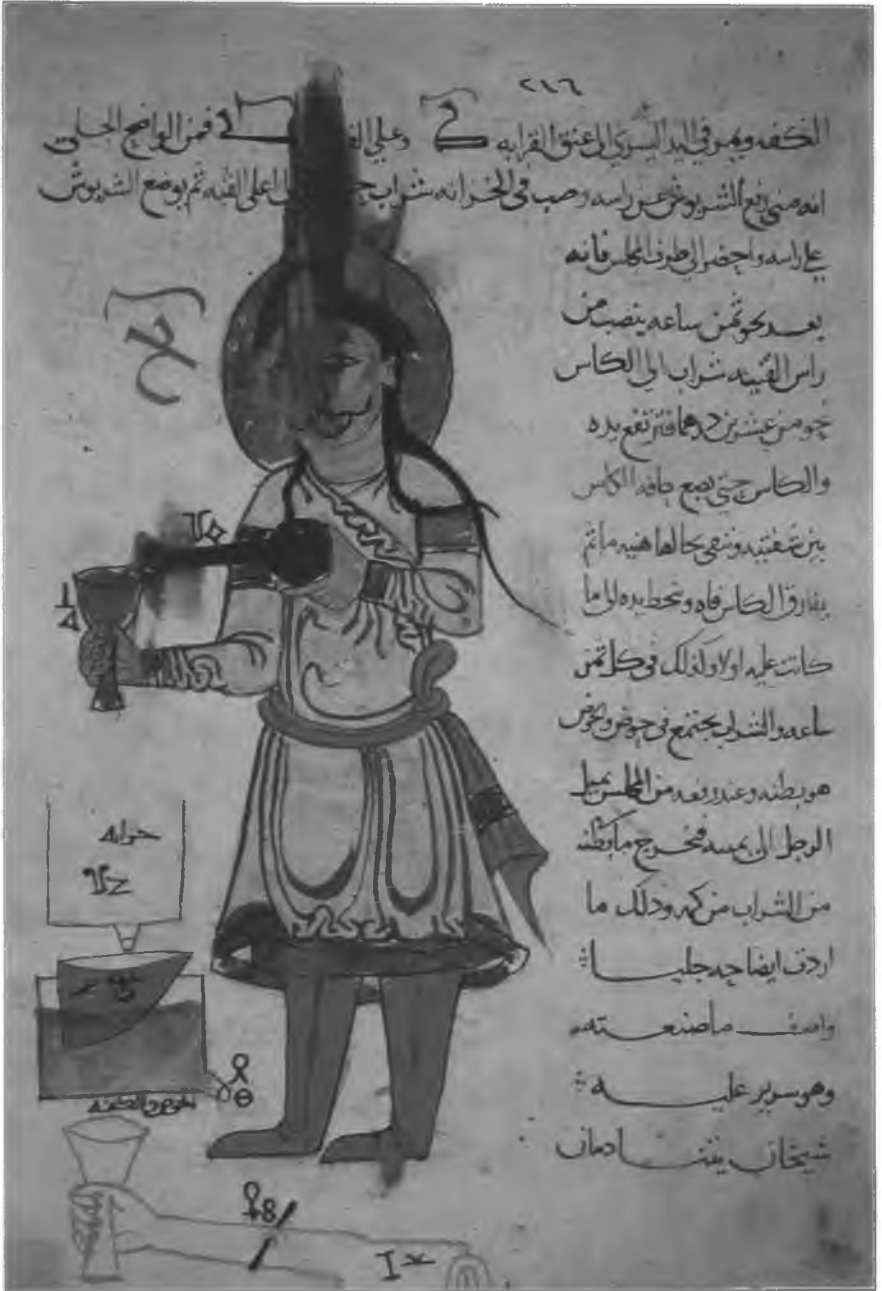 ٢١٦
الكفه ويمر في اليد اليسرى الى عنق القرابه وعلي فمن الواضح الجلي
انه متى رفع الشربوش عن راسه وصب في الخزانه شراب اعلى القبه ثم يوضع الشربوش
علي راسه واحضر الي طرف المجلس فانه
بعد نحو ثمن ساعه ينصب من
راس القنينه شراب الي الكاس
نحو من عشرين درهما فترتفع يده
والكاس حتى يضع حافه الكاس
بين شفتيه وتبقى بحالها هنيه ماثم
يفارق الكاس فاه وتنحط يده الى ما
كانت عليه اولا وكذلك في كل ثمن
ساعه والشراب يجتمع في حوض والحوض
هو بطنه وعند رفعه من المجلس يميل
الرجل الى يمينه فيخرج ما بطنه
من الشراب من كمه وذلك ما
اردت ايضاحه جليا
واصف ما صنعته
وهو سرير عليه
شيخان يتنادمان
خزانه